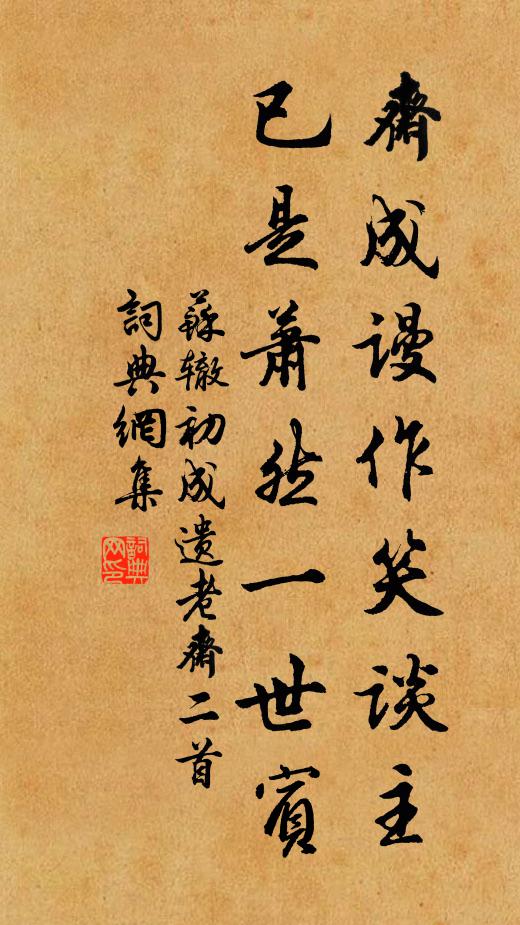 齋成謾作笑談主
已是蕭然一世賓
蘇辙初成遺老齋二首
詞典網集
詞典网印